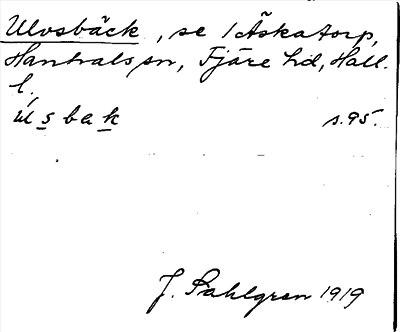 Ulvsbäck, se 1 Äskatorp,
Hanhals sn, Fjäre hd, Hall.
l.
úlsbak s.95.
J. Sahlgren 1919